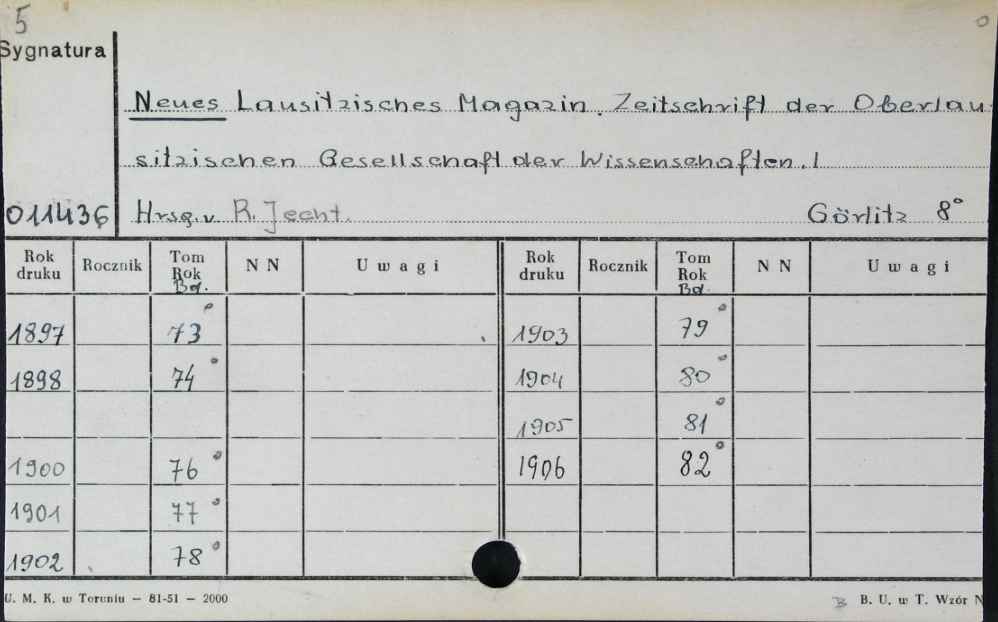 5
Sygnatura
Neues Lausitzisches Magazin. Zeitschrift der Oberlau
sitzischen Gesellschaft der Wissenschaften.
011436 Hrsg. v. R. Jecht. Görlitz 8°
Rok druku Rocznik Tom Rok Bd. N N Uwagi Rok druku Rocznik Tom Rok Bd. N N Uwagi
1897 73 1903 79
1898 74 1904 80
1905 81
1900 76 1906 82
1901 77
1902 78
U. M. K. w Toruniu — 81-51 — 2000 B B. U. w T. Wzór N